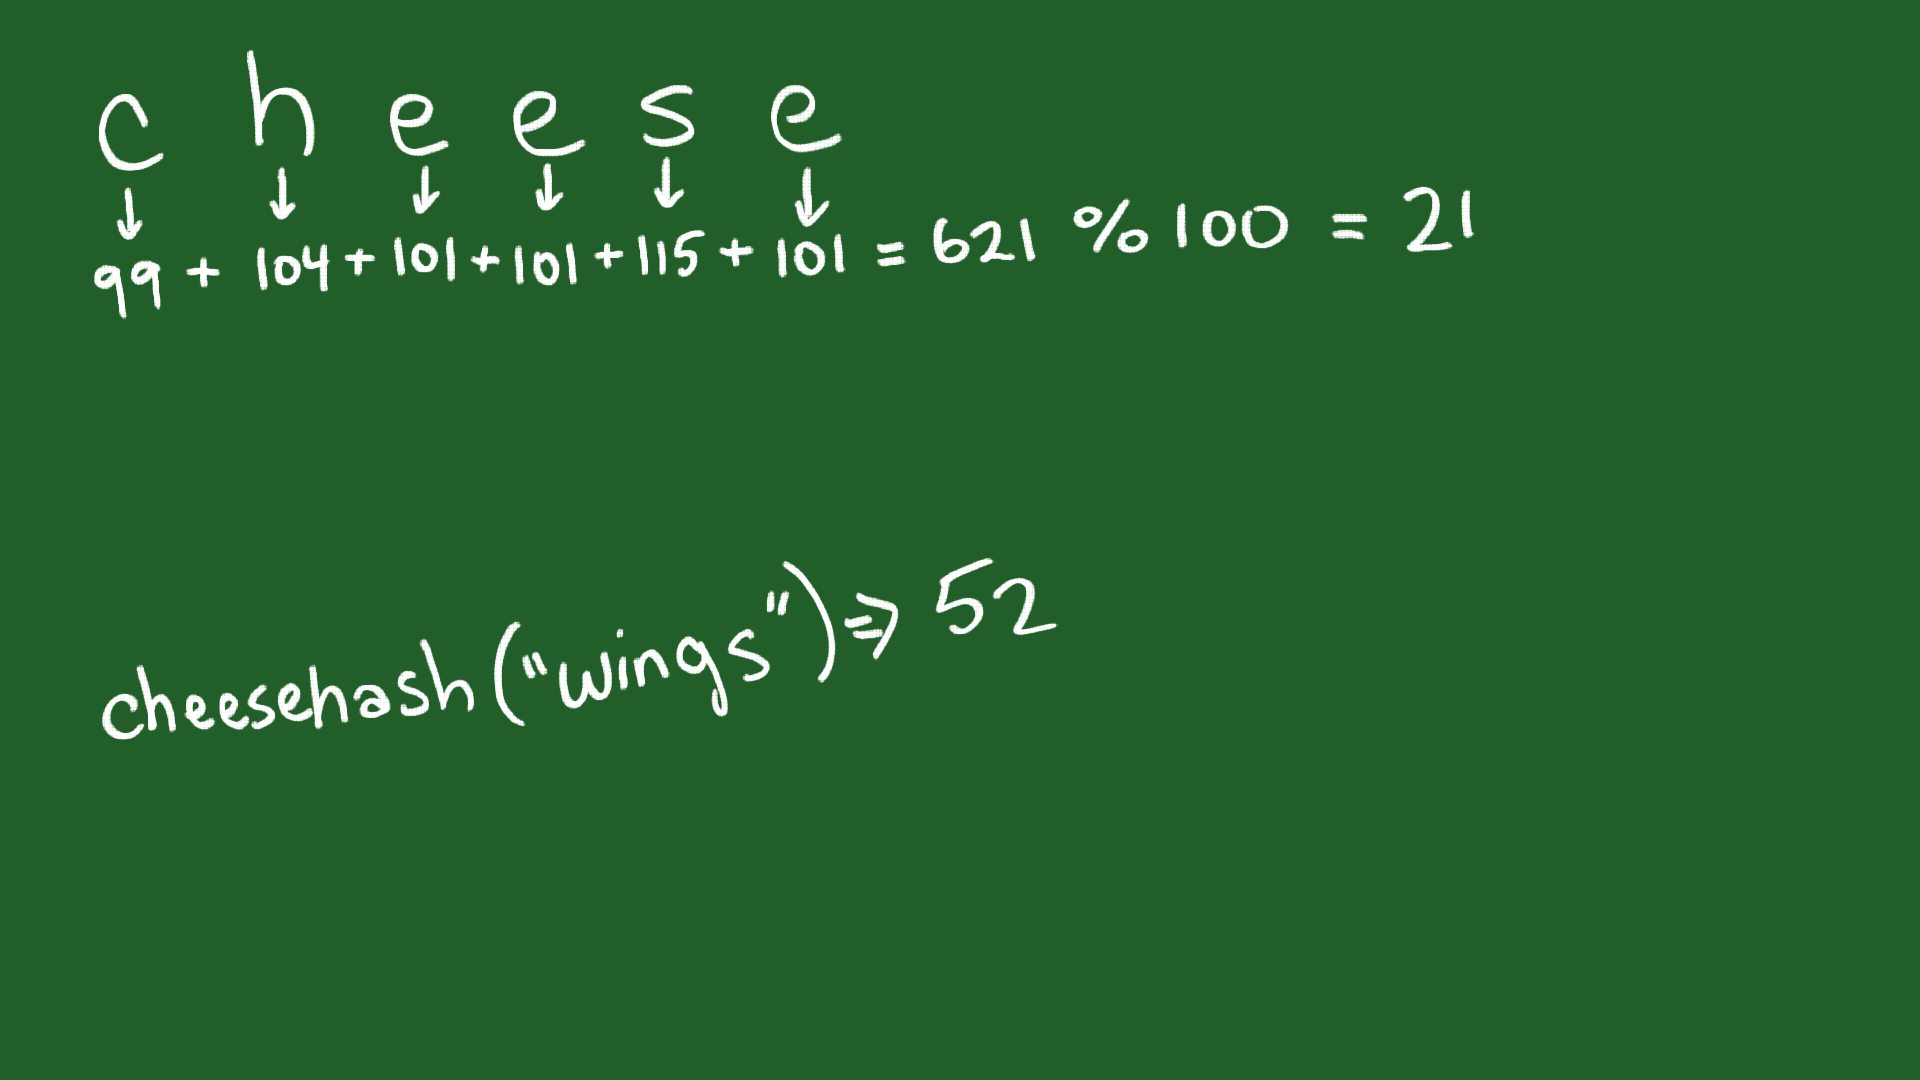 c h e e s e
↓ ↓ ↓ ↓ ↓ ↓
99 + 104 + 101 + 101 + 115 + 101 = 621 % 100 = 21
cheesehash("wings") => 52